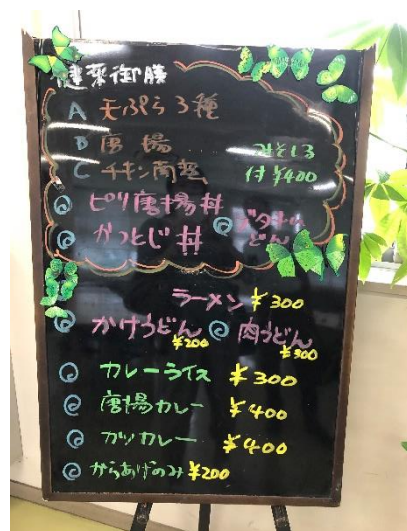 健薬御膳
A 天ぷら3種
B 唐揚 みそしる
C チキン南蛮 付¥400
ピリ唐揚丼
かつとじ丼 どん
ラーメン ¥300
かけうどん ¥200 肉うどん ¥300
カレーライス ¥300
唐揚カレー ¥400
カツカレー ¥400
からあげのみ ¥200